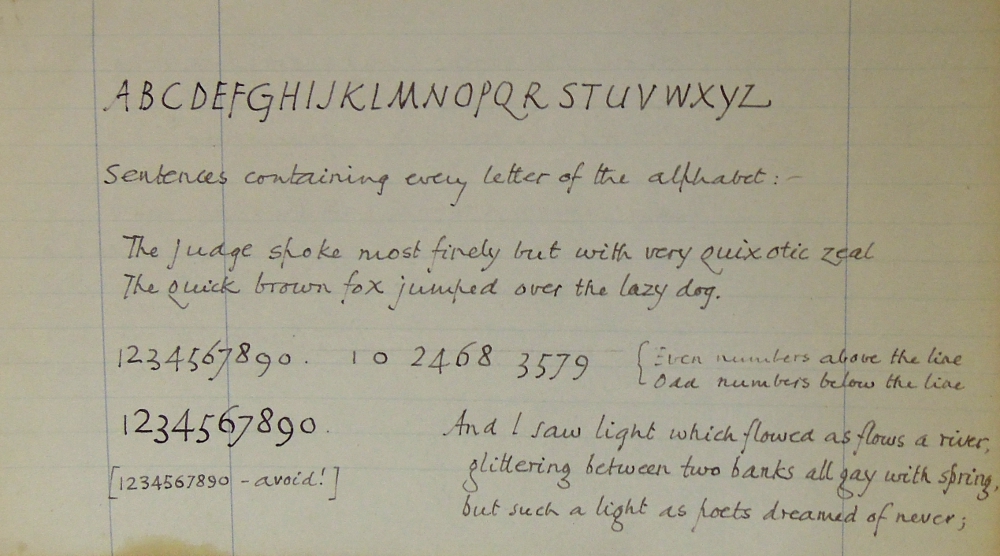 ABCDEFGHIJKLMNOPQR STUVWXYZ
Sentences containing every letter of the alphabet:-
The judge spoke most finely but with very quixotic zeal
The quick brown fox jumped over the lazy dog.
1234567890. 1 0 2468 3579 {Even numbers above the line
Odd numbers below the line
1234567890.
[1234567890 - avoid!]
And I saw light which flowed as flows a river,
glittering between two banks all gay with spring,
but such a light as poets dreamed of never;